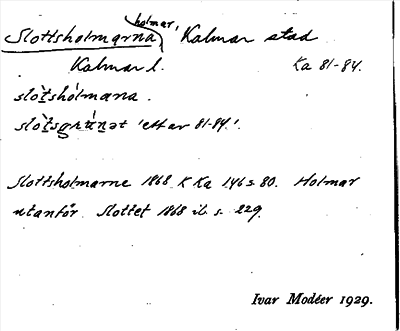 Slottsholmarna, holmar, Kalmar stad
Kalmar l. Ka 81-84.
slòtshólmana.
slòtsgrúnət 'ett av 81-84'.
Slottsholmarne 1868 K Ka 146 s. 80. Holmar
utanför Slottet 1868 ib. s. 229.
Ivar Modéer 1929.